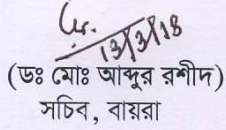 13/3/18
(ডঃ মোঃ আব্দুর রশীদ)
সচিব, বায়রা